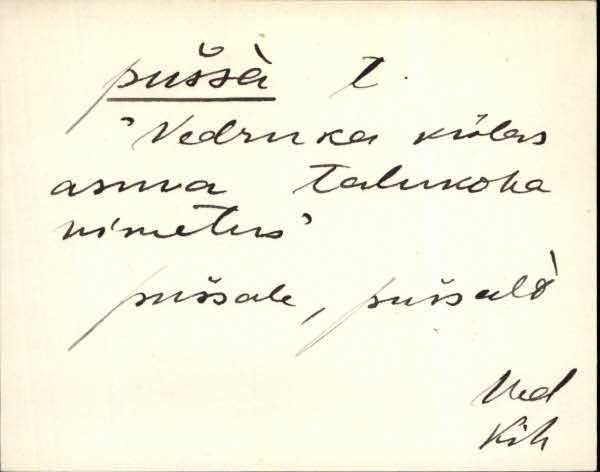 puššà t.
'Vedruka külas
asuva talukoha
nimetus'
puššale, puššalt
Ved
Kih